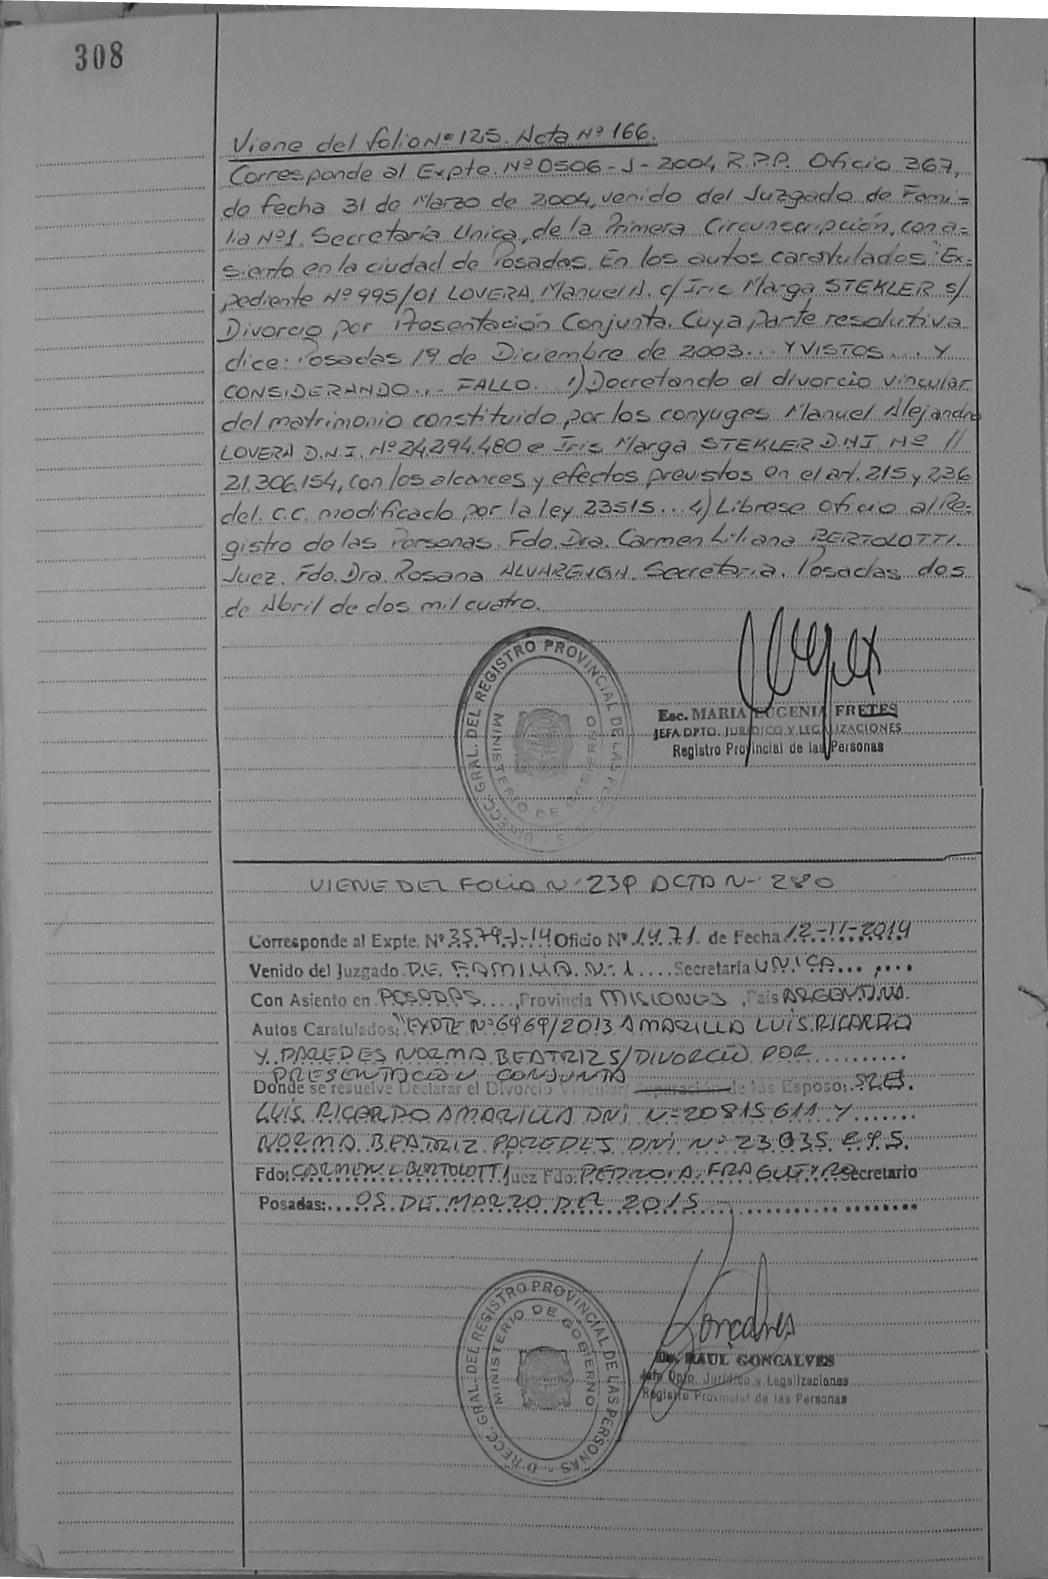 308
Viene del folio Nº 125. Acta Nº 166.
Corresponde al Expte. Nº 0506-J-2004, R.P.P. Oficio 367,
de fecha 31 de Marzo de 2004, venido del Juzgado de Fami=
lia Nº1. Secretaría Unica, de la Primera Circunscripción, con a=
siento en la ciudad de Posadas. En los autos caratulados: "Ex=
pediente Nº 995/01 LOVERA, Manuel A. c/ Iris Marga STEKLER s/
Divorcio por Presentación Conjunta. Cuya parte resolutiva
dice: Posadas 19 de Diciembre de 2003... Y VISTOS... Y
CONSIDERANDO... FALLO. 1) Decretando el divorcio vincular
del matrimonio constituido por los conyuges Manuel Alejandro
LOVERA D.N.I. Nº 24.294.480 e Iris Marga STEKLER D.N.I. Nº //
21.306.154, con los alcances y efectos previstos en el art. 215 y 236
del. C.C. modificado por la ley 23515... 4) Librese oficio al Re=
gistro de las Personas. Fdo. Dra. Carmen Liliana BERTOLOTTI.
Juez. Fdo. Dra. Rosana ALVARENGA. Secretaria. Posadas dos
de Abril de dos mil cuatro.
DIRECC. GRAL. DEL REGISTRO PROVINCIAL DE LAS PERSONAS
MINISTERIO DE GOBIERNO
Esc. MARIA EUGENIA FRETES
JEFA DPTO. JURIDICO Y LEGALIZACIONES
Registro Provincial de las Personas
VIENE DEL FOLIO Nº 239 ACTA Nº 280
Corresponde al Expte. Nº 3579-J-14 Oficio Nº 1471. de Fecha 12-11-2014
Venido del Juzgado DE FAMILIA Nº 1.... Secretaría UNICA....,....
Con Asiento en POSADAS...., Provincia MISIONES, País ARGENTINA.
Autos Caratulados: "EXPTE Nº 6969/2013 AMARILLA LUIS RICARDO
Y PAREDES NORMA BEATRIZ S/DIVORCIO POR..........
PRESENTACION CONJUNTA
Donde se resuelve Declarar el Divorcio Vincular/ Separación de los Esposo: SRES.
LUIS RICARDO AMARILLA DNI Nº 20815611 Y .......
NORMA BEATRIZ PAREDES DNI Nº 23.035.895.
Fdo: CARMEN L BERTOLOTTI Juez Fdo: PEDRO A. FRAGUEYRO Secretario
Posadas:.... 05 DE MARZO DEL 2015....................
DIRECC. GRAL. DEL REGISTRO PROVINCIAL DE LAS PERSONAS
MINISTERIO DE GOBIERNO
Goncalves
Dr. RAUL GONCALVES
Jefe Dpto. Jurídico y Legalizaciones
Registro Provincial de las Personas